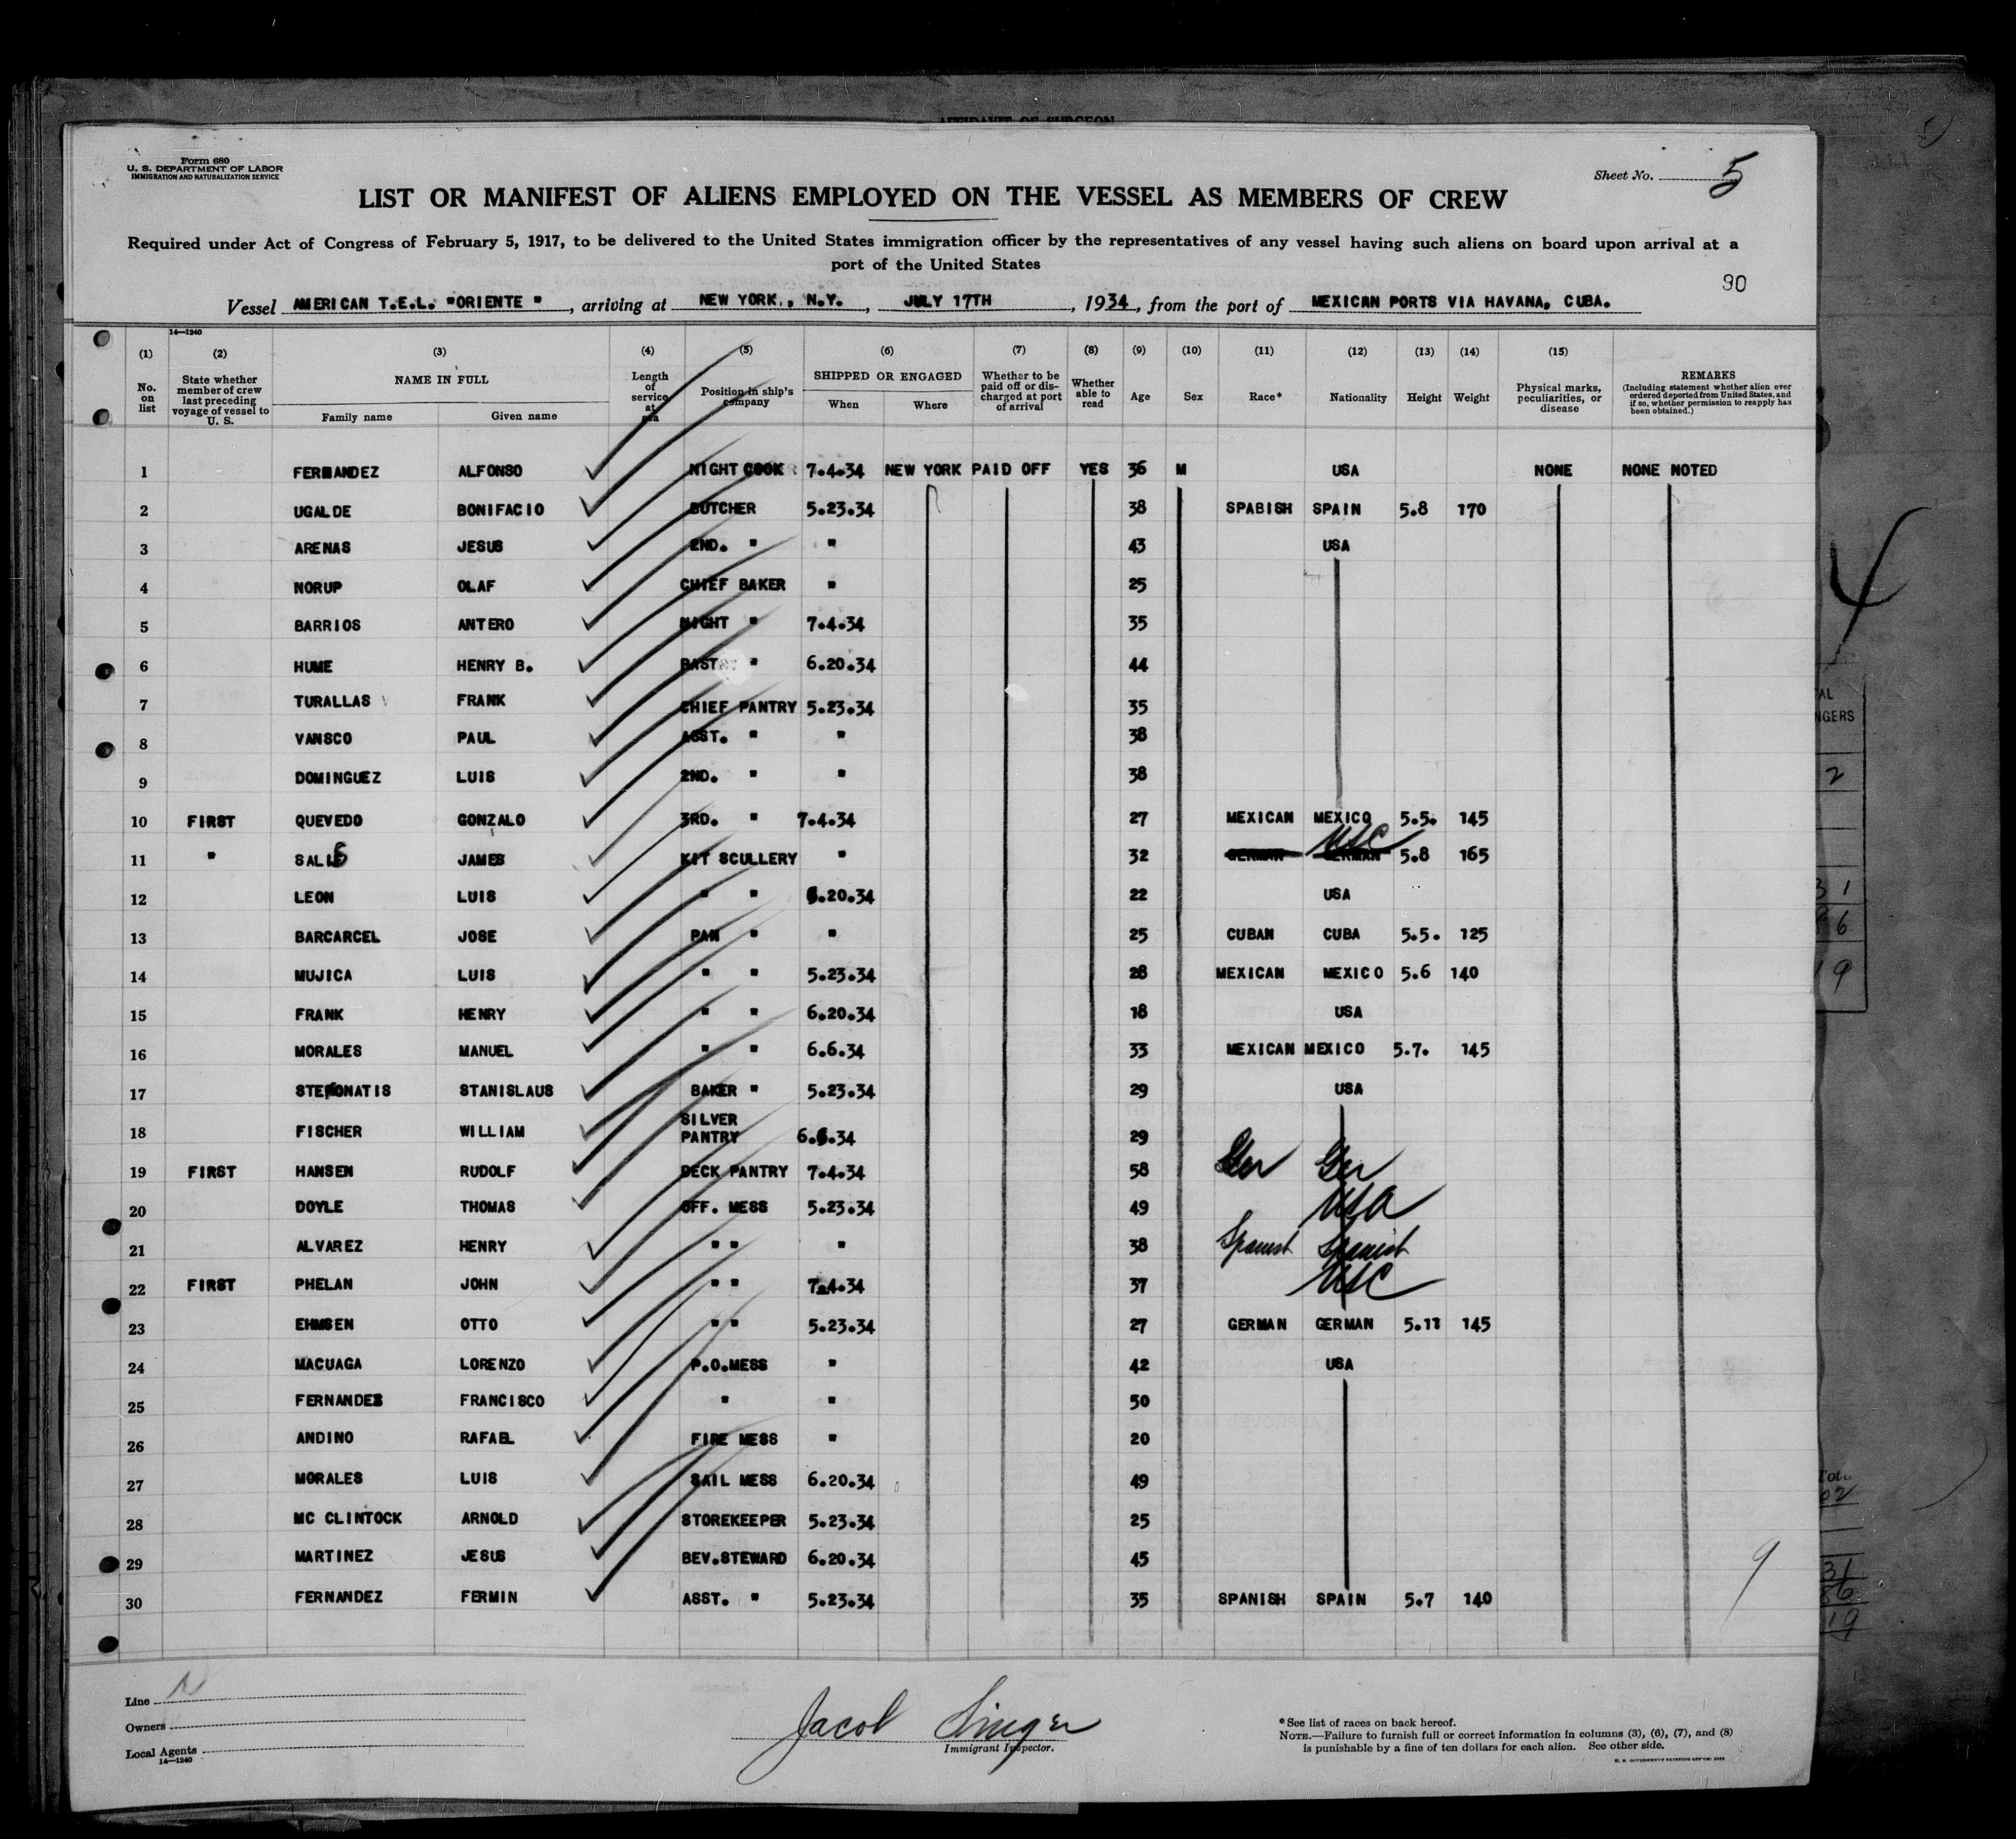 AFFIDAVIT OF SURGEON
Form 680
U. S. DEPARTMENT OF LABOR
IMMIGRATION AND NATURALIZATION SERVICE
Sheet No. 5
LIST OR MANIFEST OF ALIENS EMPLOYED ON THE VESSEL AS MEMBERS OF CREW
Required under Act of Congress of February 5, 1917, to be delivered to the United States immigration officer by the representatives of any vessel having such aliens on board upon arrival at a
port of the United States
90
Vessel AMERICAN T.E.L. "ORIENTE", arriving at NEW YORK,, N.Y., JULY 17TH, 1934, from the port of MEXICAN PORTS VIA HAVANA, CUBA.
14—1240
(1) (2) (3) (4) (5) (6) (7) (8) (9) (10) (11) (12) (13) (14) (15)
No. on list State whether member of crew last preceding voyage of vessel to U. S. NAME IN FULL Family name Given name Length of service at sea Position in ship's company SHIPPED OR ENGAGED When Where Whether to be paid off or discharged at port of arrival Whether able to read Age Sex Race* Nationality Height Weight Physical marks, peculiarities, or disease REMARKS (Including statement whether alien ever ordered deported from United States, and if so, whether permission to reapply has been obtained.)
1 FERNANDEZ ALFONSO NIGHT COOK 7.4.34 NEW YORK PAID OFF YES 36 M USA NONE NONE NOTED
2 UGALDE BONIFACIO BUTCHER 5.23.34 38 SPABISH SPAIN 5.8 170
3 ARENAS JESUS 2ND. " " 43 USA
4 NORUP OLAF CHIEF BAKER " 25
5 BARRIOS ANTERO NIGHT " 7.4.34 35
6 HUME HENRY B. " 6.20.34 44
7 TURALLAS FRANK CHIEF PANTRY 5.23.34 35
8 VANSCO PAUL ASST. " " 38
9 DOMINGUEZ LUIS 2ND. " " 38
10 FIRST QUEVEDO GONZALO 3RD. " 7.4.34 27 MEXICAN MEXICO 5.5. 145
11 " SALIS JAMES KIT SCULLERY " 32 GERMAN GERMAN USC 5.8 165
12 LEON LUIS " " 6.20.34 22 USA
13 BARCARCEL JOSE PAN " " 25 CUBAN CUBA 5.5. 125
14 MUJICA LUIS " " 5.23.34 28 MEXICAN MEXICO 5.6 140
15 FRANK HENRY " " 6.20.34 18 USA
16 MORALES MANUEL " " 6.6.34 33 MEXICAN MEXICO 5.7. 145
17 STEFONATIS STANISLAUS BAKER " 5.23.34 29 USA
18 FISCHER WILLIAM SILVER PANTRY 6.6.34 29
19 FIRST HANSEN RUDOLF DECK PANTRY 7.4.34 58 Ger Ger
20 DOYLE THOMAS OFF. MESS 5.23.34 49 USA
21 ALVAREZ HENRY " " " 38 Spanish Spanish
22 FIRST PHELAN JOHN " " 7.4.34 37 USC
23 EHMSEN OTTO " " 5.23.34 27 GERMAN GERMAN 5.11 145
24 MACUAGA LORENZO P.O.MESS " 42 USA
25 FERNANDEZ FRANCISCO " " 50
26 ANDINO RAFAEL FIRE MESS " 20
27 MORALES LUIS SAIL MESS 6.20.34 49
28 MC CLINTOCK ARNOLD STOREKEEPER 5.23.34 25
29 MARTINEZ JESUS BEV.STEWARD 6.20.34 45
30 FERNANDEZ FERMIN ASST. " 5.23.34 35 SPANISH SPAIN 5.7 140
9
Line
Owners
Local Agents
14—1240
Jacob Singer
Immigrant Inspector.
*See list of races on back hereof.
NOTE.—Failure to furnish full or correct information in columns (3), (6), (7), and (8)
is punishable by a fine of ten dollars for each alien. See other side.